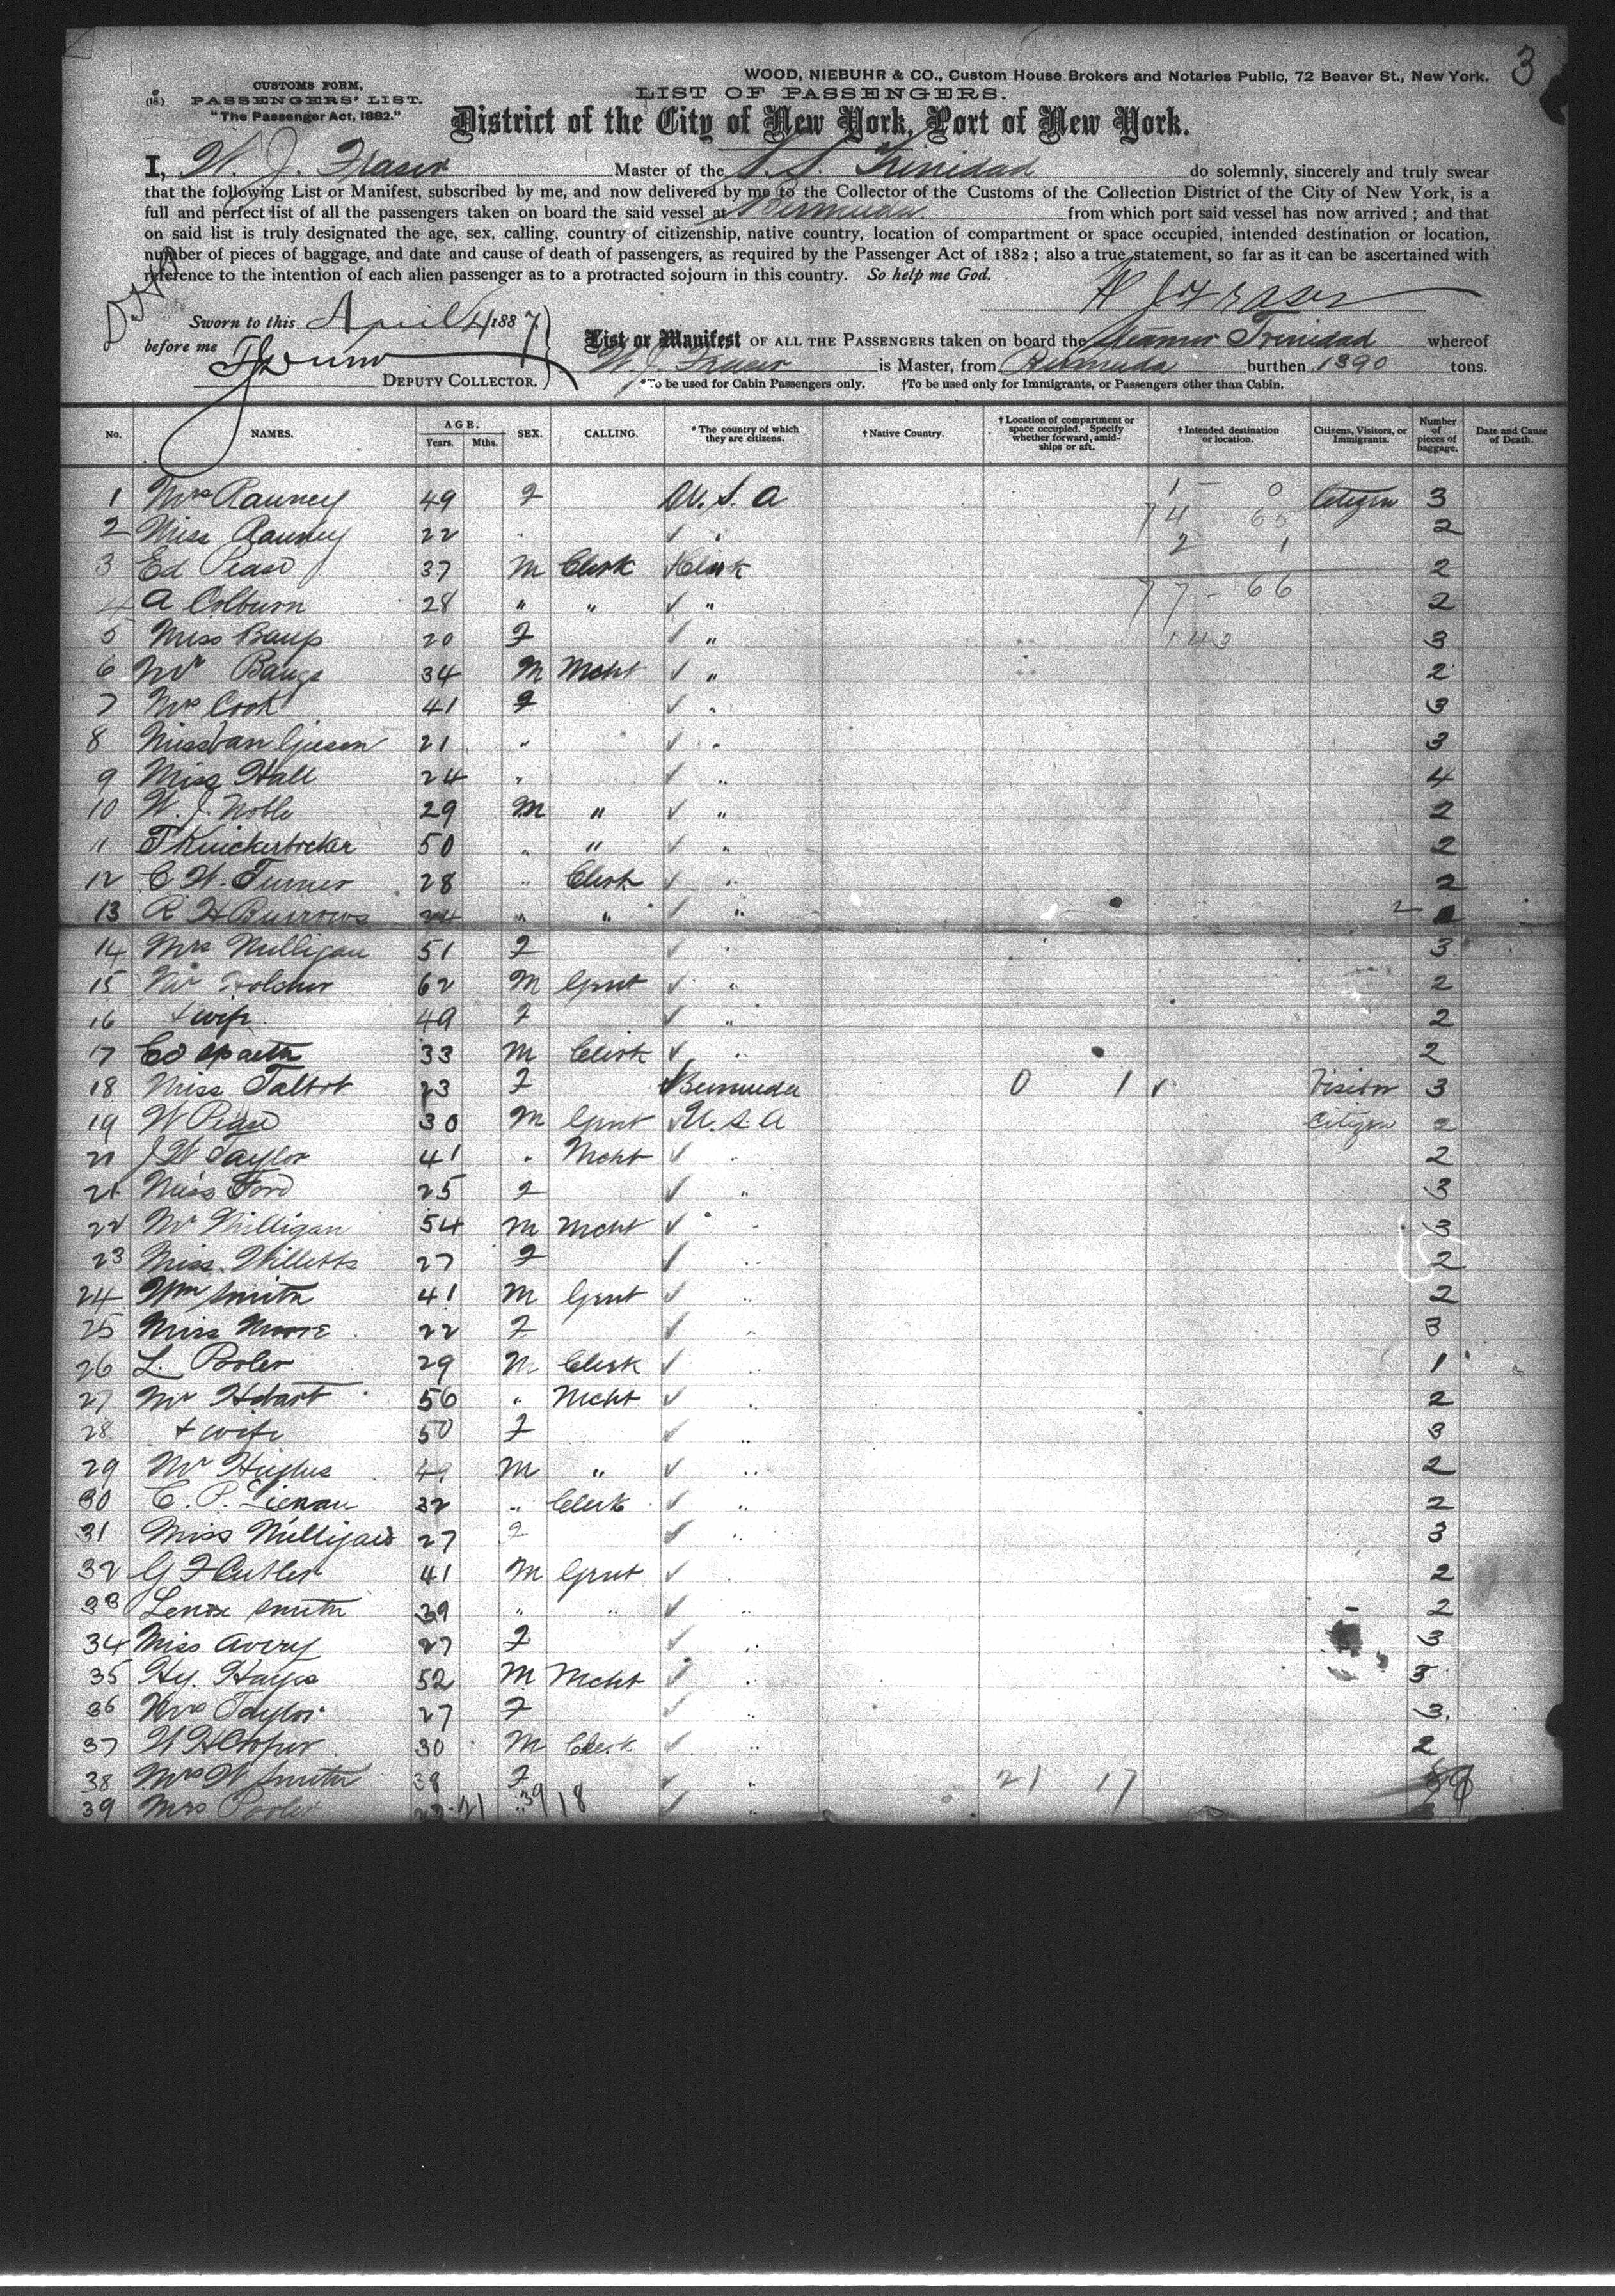 3
WOOD, NIEBUHR & CO., Custom House Brokers and Notaries Public, 72 Beaver St., New York.
CUSTOMS FORM,
PASSENGERS' LIST.
"The Passenger Act, 1882."
(18)
LIST OF PASSENGERS.
District of the City of New York, Port of New York.
I, W. J. Fraser Master of the S.S. Trinidad do solemnly, sincerely and truly swear
that the following List or Manifest, subscribed by me, and now delivered by me to the Collector of the Customs of the Collection District of the City of New York, is a
full and perfect list of all the passengers taken on board the said vessel at Bermuda from which port said vessel has now arrived; and that
on said list is truly designated the age, sex, calling, country of citizenship, native country, location of compartment or space occupied, intended destination or location,
number of pieces of baggage, and date and cause of death of passengers, as required by the Passenger Act of 1882; also a true statement, so far as it can be ascertained with
reference to the intention of each alien passenger as to a protracted sojourn in this country. So help me God.
W J Fraser
Sworn to this April 4/1887
before me
DEPUTY COLLECTOR.
List or Manifest OF ALL THE PASSENGERS taken on board the Steamer Trinidad whereof
W. J. Fraser is Master, from Bermuda burthen 1390 tons.
*To be used for Cabin Passengers only. †To be used only for Immigrants, or Passengers other than Cabin.
No. NAMES. AGE. Years. Mths. SEX. CALLING. *The country of which they are citizens. †Native Country. †Location of compartment or space occupied. Specify whether forward, amidships or aft. †Intended destination or location. Citizens, Visitors, or Immigrants. Number of pieces of baggage. Date and Cause of Death.
1 Mrs Ranney 49 F U. S. A 1 - 0 Citizen 3
2 Miss Ranney 22 " ✓ " 74 65 2
2 1
3 Ed Pease 37 M Clerk Clerk 2
77 - 66
4 A Colburn 28 " " ✓ " 2
5 Miss Baup 20 F ✓ " 143 3
6 Mr Bangs 34 M Mcht ✓ " 2
7 Mrs Cook 41 F ✓ " 3
8 Miss Van Giesen 21 " ✓ " 3
9 Miss Hall 24 " ✓ " 4
10 W. J. Noble 29 M " ✓ " 2
11 T Knickerbocker 50 " " ✓ " 2
12 C W. Turner 28 " Clerk ✓ " 2
13 R H Burrows 24 " " ✓ " 2
14 Mrs Milligan 51 F ✓ " 3
15 Mr Holcher 62 M Gent ✓ " 2
16 + wife 49 F ✓ " 2
17 Ed Spaeth 33 M Clerk ✓ " 2
18 Miss Talbot 23 F Bermuda 0 1 ✓ Visitor 3
19 W Pease 30 M Gent U. S A Citizen 2
20 J W Taylor 41 " Mcht ✓ " 2
21 Miss Ford 25 F ✓ " 3
22 Mr Milligan 54 M Mcht ✓ " 3
23 Miss Willetts 27 F ✓ " 2
24 Wm Smith 41 M Gent ✓ " 2
25 Miss Moore 22 F ✓ " 3
26 L. Pooler 29 M Clerk ✓ " 1
27 Mr Hobart 56 " Mcht ✓ " 2
28 + wife 50 F ✓ " 3
29 Mr Hughes 49 M " ✓ " 2
30 C. P. Lienau 32 " Clerk ✓ " 2
31 Miss Milligan 27 F ✓ " 3
32 G F Cutler 41 M Gent ✓ " 2
33 Lenox Smith 39 " " ✓ " 2
34 Miss Avery 27 F ✓ " 3
35 Hy. Hayes 52 M Mcht ✓ " 3
36 Mrs Taylor 27 F ✓ " 3
37 W H Cooper 30 M Clerk ✓ " 2
38 Mrs W Smith 38 F ✓ " 21 17
39 Mrs Pooler 21 39 18 ✓ "